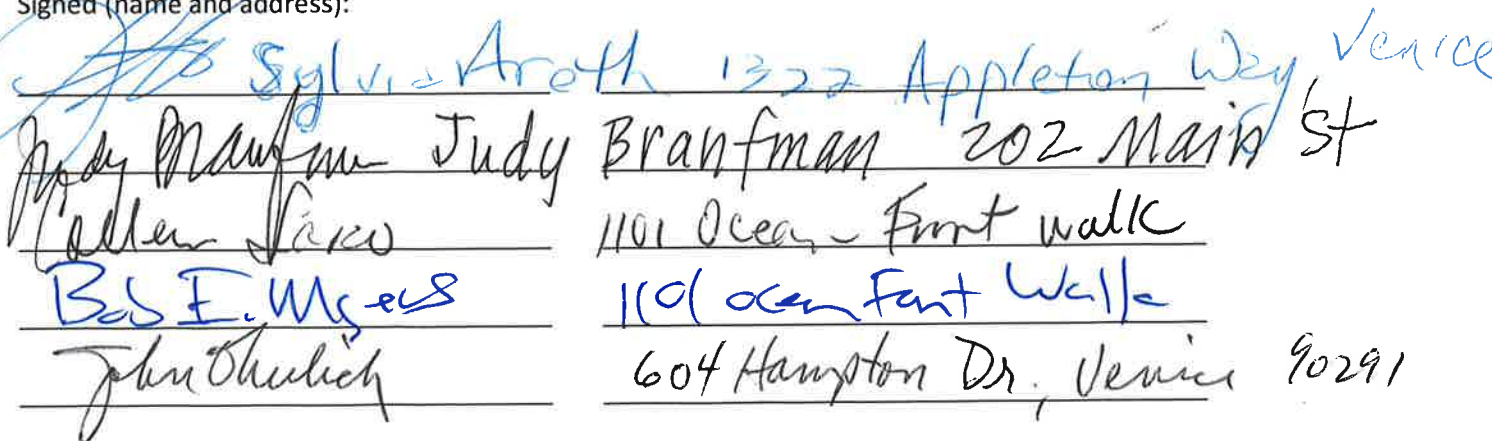 Signed (name and address):
Sylvia Aroth 1322 Appleton Way Venice
Judy Branfman Judy Branfman 202 Main St
1101 Ocean Front walk
Bob E. Myers 1101 ocean Front Walk
John 604 Hampton Dr., Venice 90291